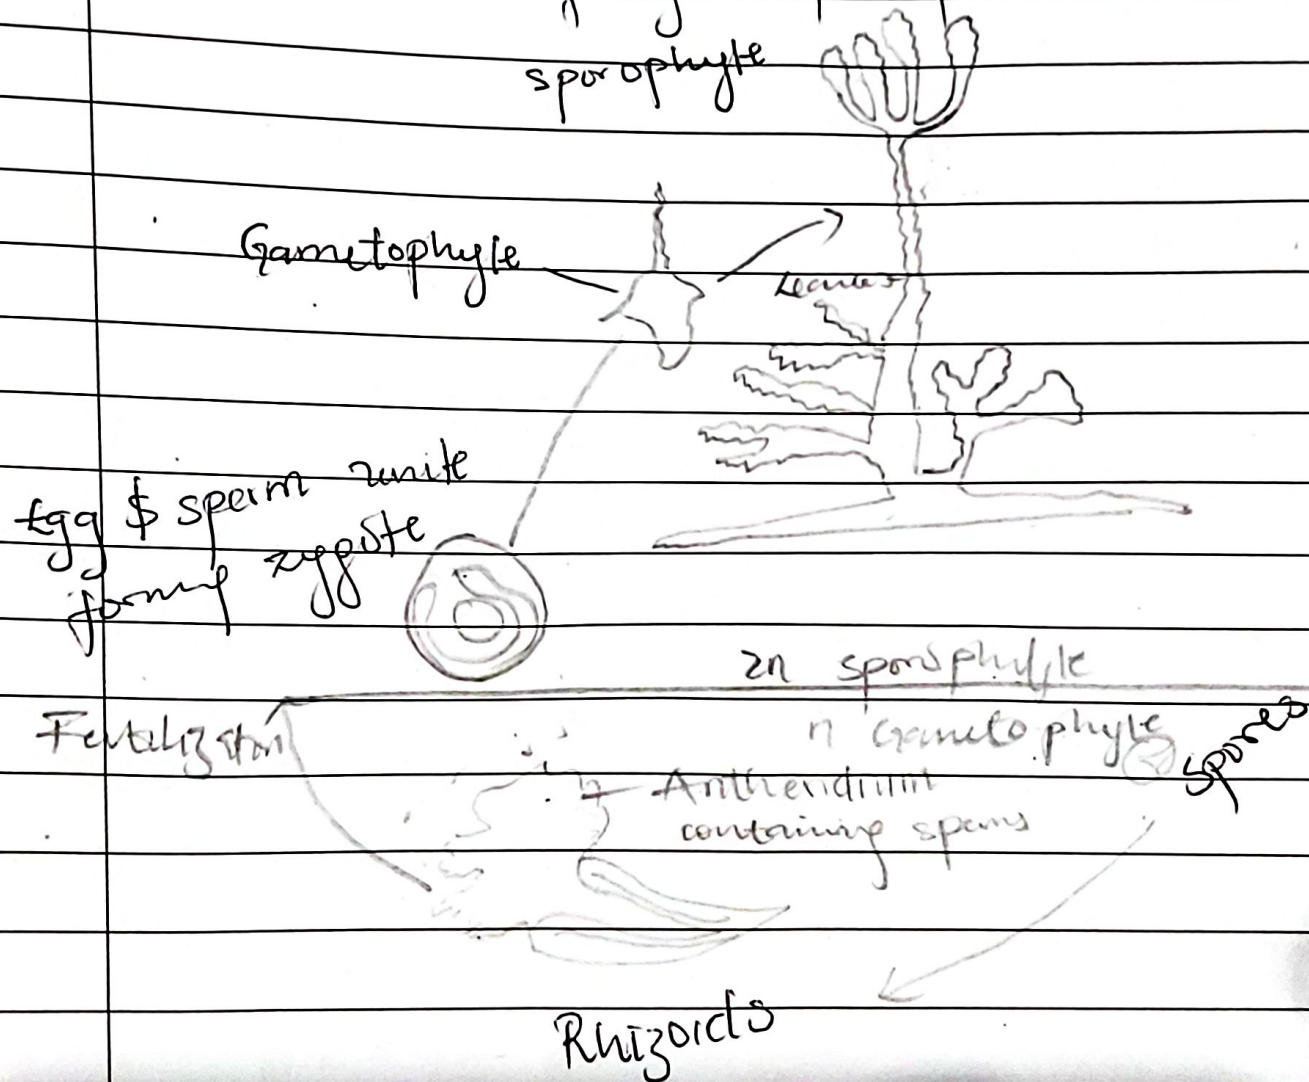 sporophyte
Gametophyte
Leaves
Egg $ sperm unite
forming zygote
2n sporophyte
Fertilization
n Gametophyte
Spores
Antheridium
containing sperms
Rhizoids